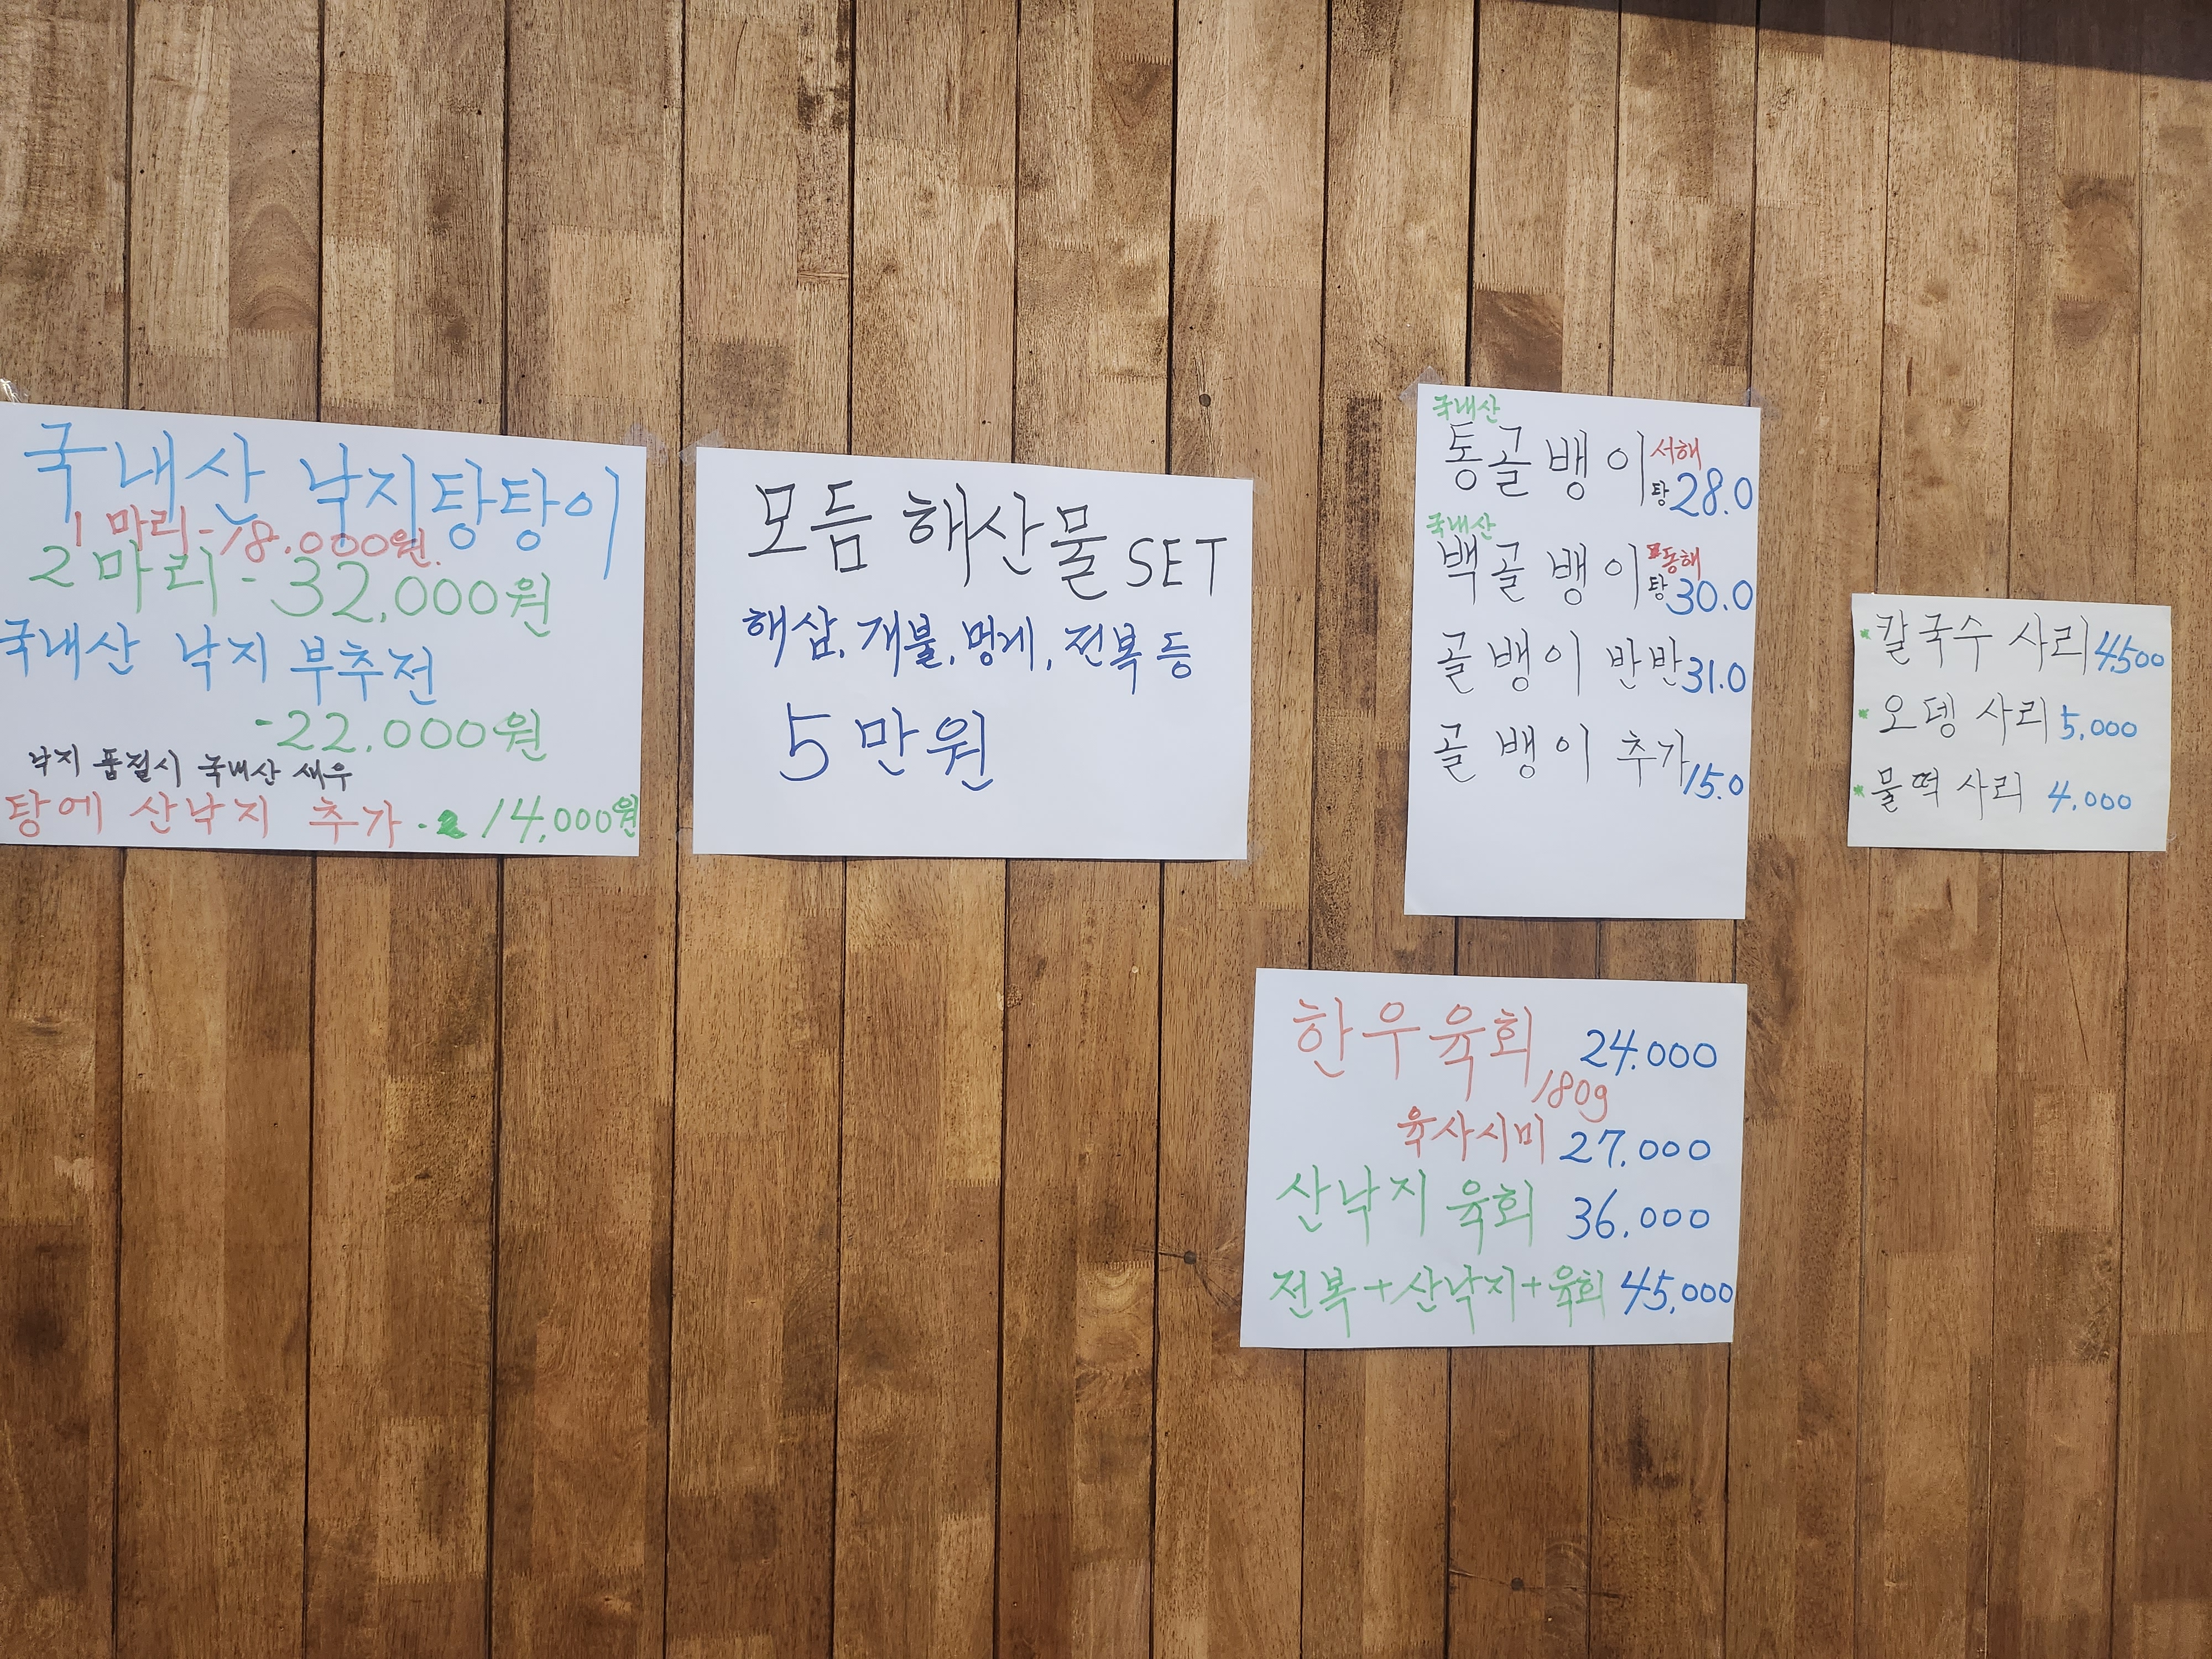 국내산 낙지탕탕이
1마리-18.000원.
2마리-32,000원
국내산 낙지 부추전
-22.000원
낙지 품절시 국내산 새우
탕에 산낙지 추가. 14,000원
모듬 해산물 SET
해삼, 개불, 멍게, 전복 등
5만원
국내산
통골뱅이 서해
탕 28.0
국내산
백골뱅이 동해
탕 30.0
골뱅이 반반 31.0
골뱅이 추가 15.0
칼국수 사리 4500
오뎅 사리 5,000
물떡 사리 4,000
한우육회 24.000
180g
육사시미 27.000
산낙지 육회 36.000
전복+산낙지+육회 45,000